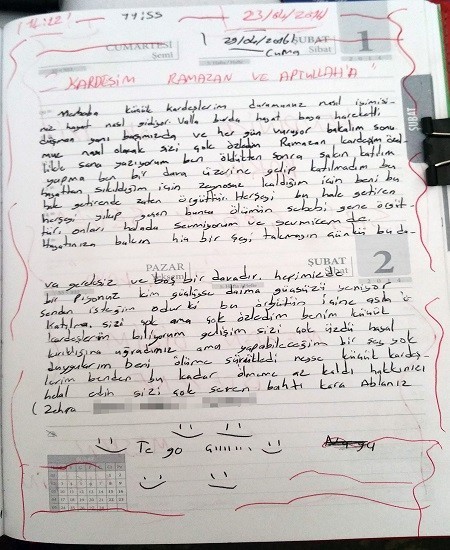 14:22 11:55 23/04/2016
29/04/2016 ŞUBAT 1
CUMARTESİ Cuma
Şemi Sibat
KARDEŞİM RAMAZAN VE APTULLAH'A
Merhaba küçük kardeşlerim durumunuz nasıl iyimisi-
niz hayat nasıl gidiyor. Valla burda hayat baya hareketli
düşman yanı başımızda ve her gün vuruyor bakalım sonu-
muz nasıl olacak sizi çok özledim Ramazan kardeşim özel-
likle sana yazıyorum ben öldükten sonra sakın katılım
yapma ben bir dava üzerine gelip katılmadım ben
hayattan sıkıldığım için kaldığım için beni bu
hale getirende zaten örgüttür. Herşeyi bu hale getiren
herşeyi yıkıp geçen bunca ölümün sebebi gene örgüt-
tür. onları halada sevmiyorum ve sevmicem de.
Hayatınıza bakın hiç bir şeyi takmayın Çünkü bu da-
PAZAR ŞUBAT 2
va gereksiz ve boş bir davadır. hepimizde
bir piyonuz kim güçlüyse daima güçsüzü yeniyor
senden isteğim odurki bu örgütün içine asla
katılma. sizi çok ama çok özledim benim küçük
kardeşlerim biliyorum gelişim sizi çok üzdü hayal
kırıklığına uğradınız ama yapabileceğim bir şey yok
duygularım beni ölüme sürükledi neyse küçük kardeş-
lerim benden bu kadar ölmeme az kaldı hakkınızı
helal edin sizi çok seven bahtı kara Ablanız
( Zehra
ŞUBAT